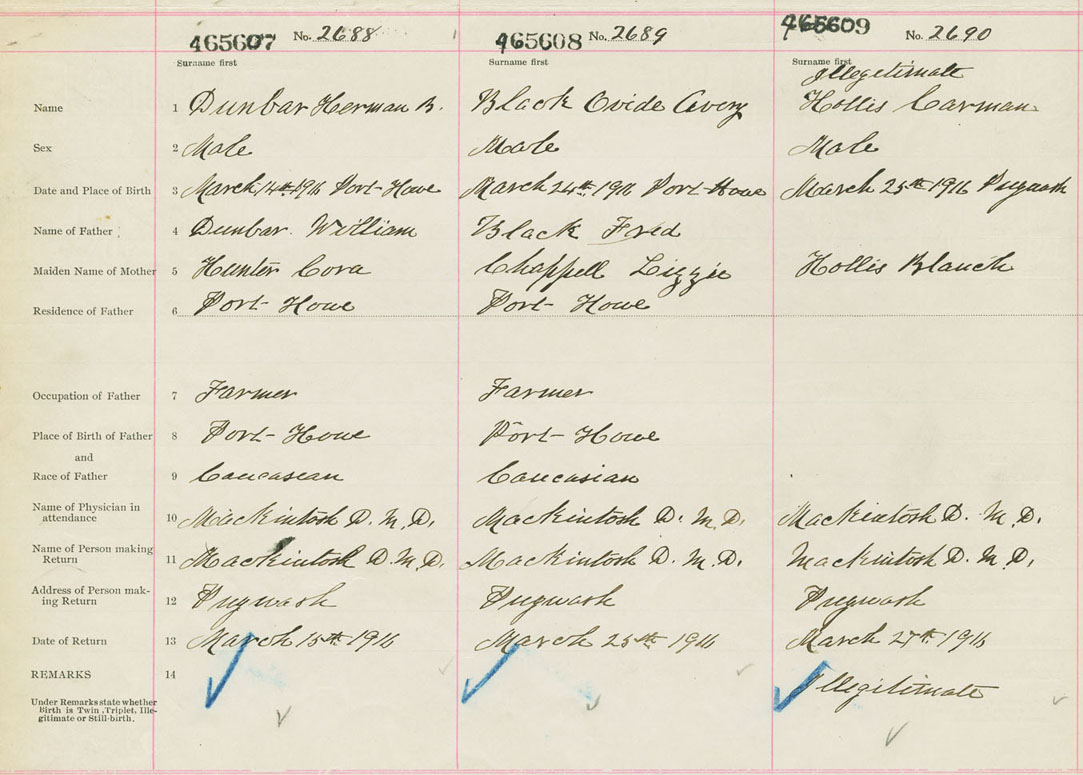 465607 No. 2688 465608 No. 2689 465609 No. 2690
Surname first Surname first Surname first
Illegitimate
Name 1 Dunbar Herman B. Black Ovide Avery Hollis Carman
Sex 2 Male Male Male
Date and Place of Birth 3 March 14th 1916 Port-Howe March 24th 1916 Port-Howe March 25th 1916 Pugwash
Name of Father 4 Dunbar William Black Fred
Maiden Name of Mother 5 Hunter Cora Chappell Lizzie Hollis Blanch
Residence of Father 6 Port-Howe Port-Howe
Occupation of Father 7 Farmer Farmer
Place of Birth of Father 8 Port-Howe Port-Howe
and
Race of Father 9 Caucasean Caucasian
Name of Physician in
attendance 10 Mackintosh D. M. D. Mackintosh D. M. D. Mackintosh D. M. D.
Name of Person making
Return 11 Mackintosh D. M. D. Mackintosh D. M. D. Mackintosh D. M. D.
Address of Person mak-
ing Return 12 Pugwash Pugwash Pugwash
Date of Return 13 March 15th 1916 March 25th 1916 March 27th 1916
REMARKS 14 Illegitimate
Under Remarks state whether
Birth is Twin, Triplet, Ille-
gitimate or Still-birth.